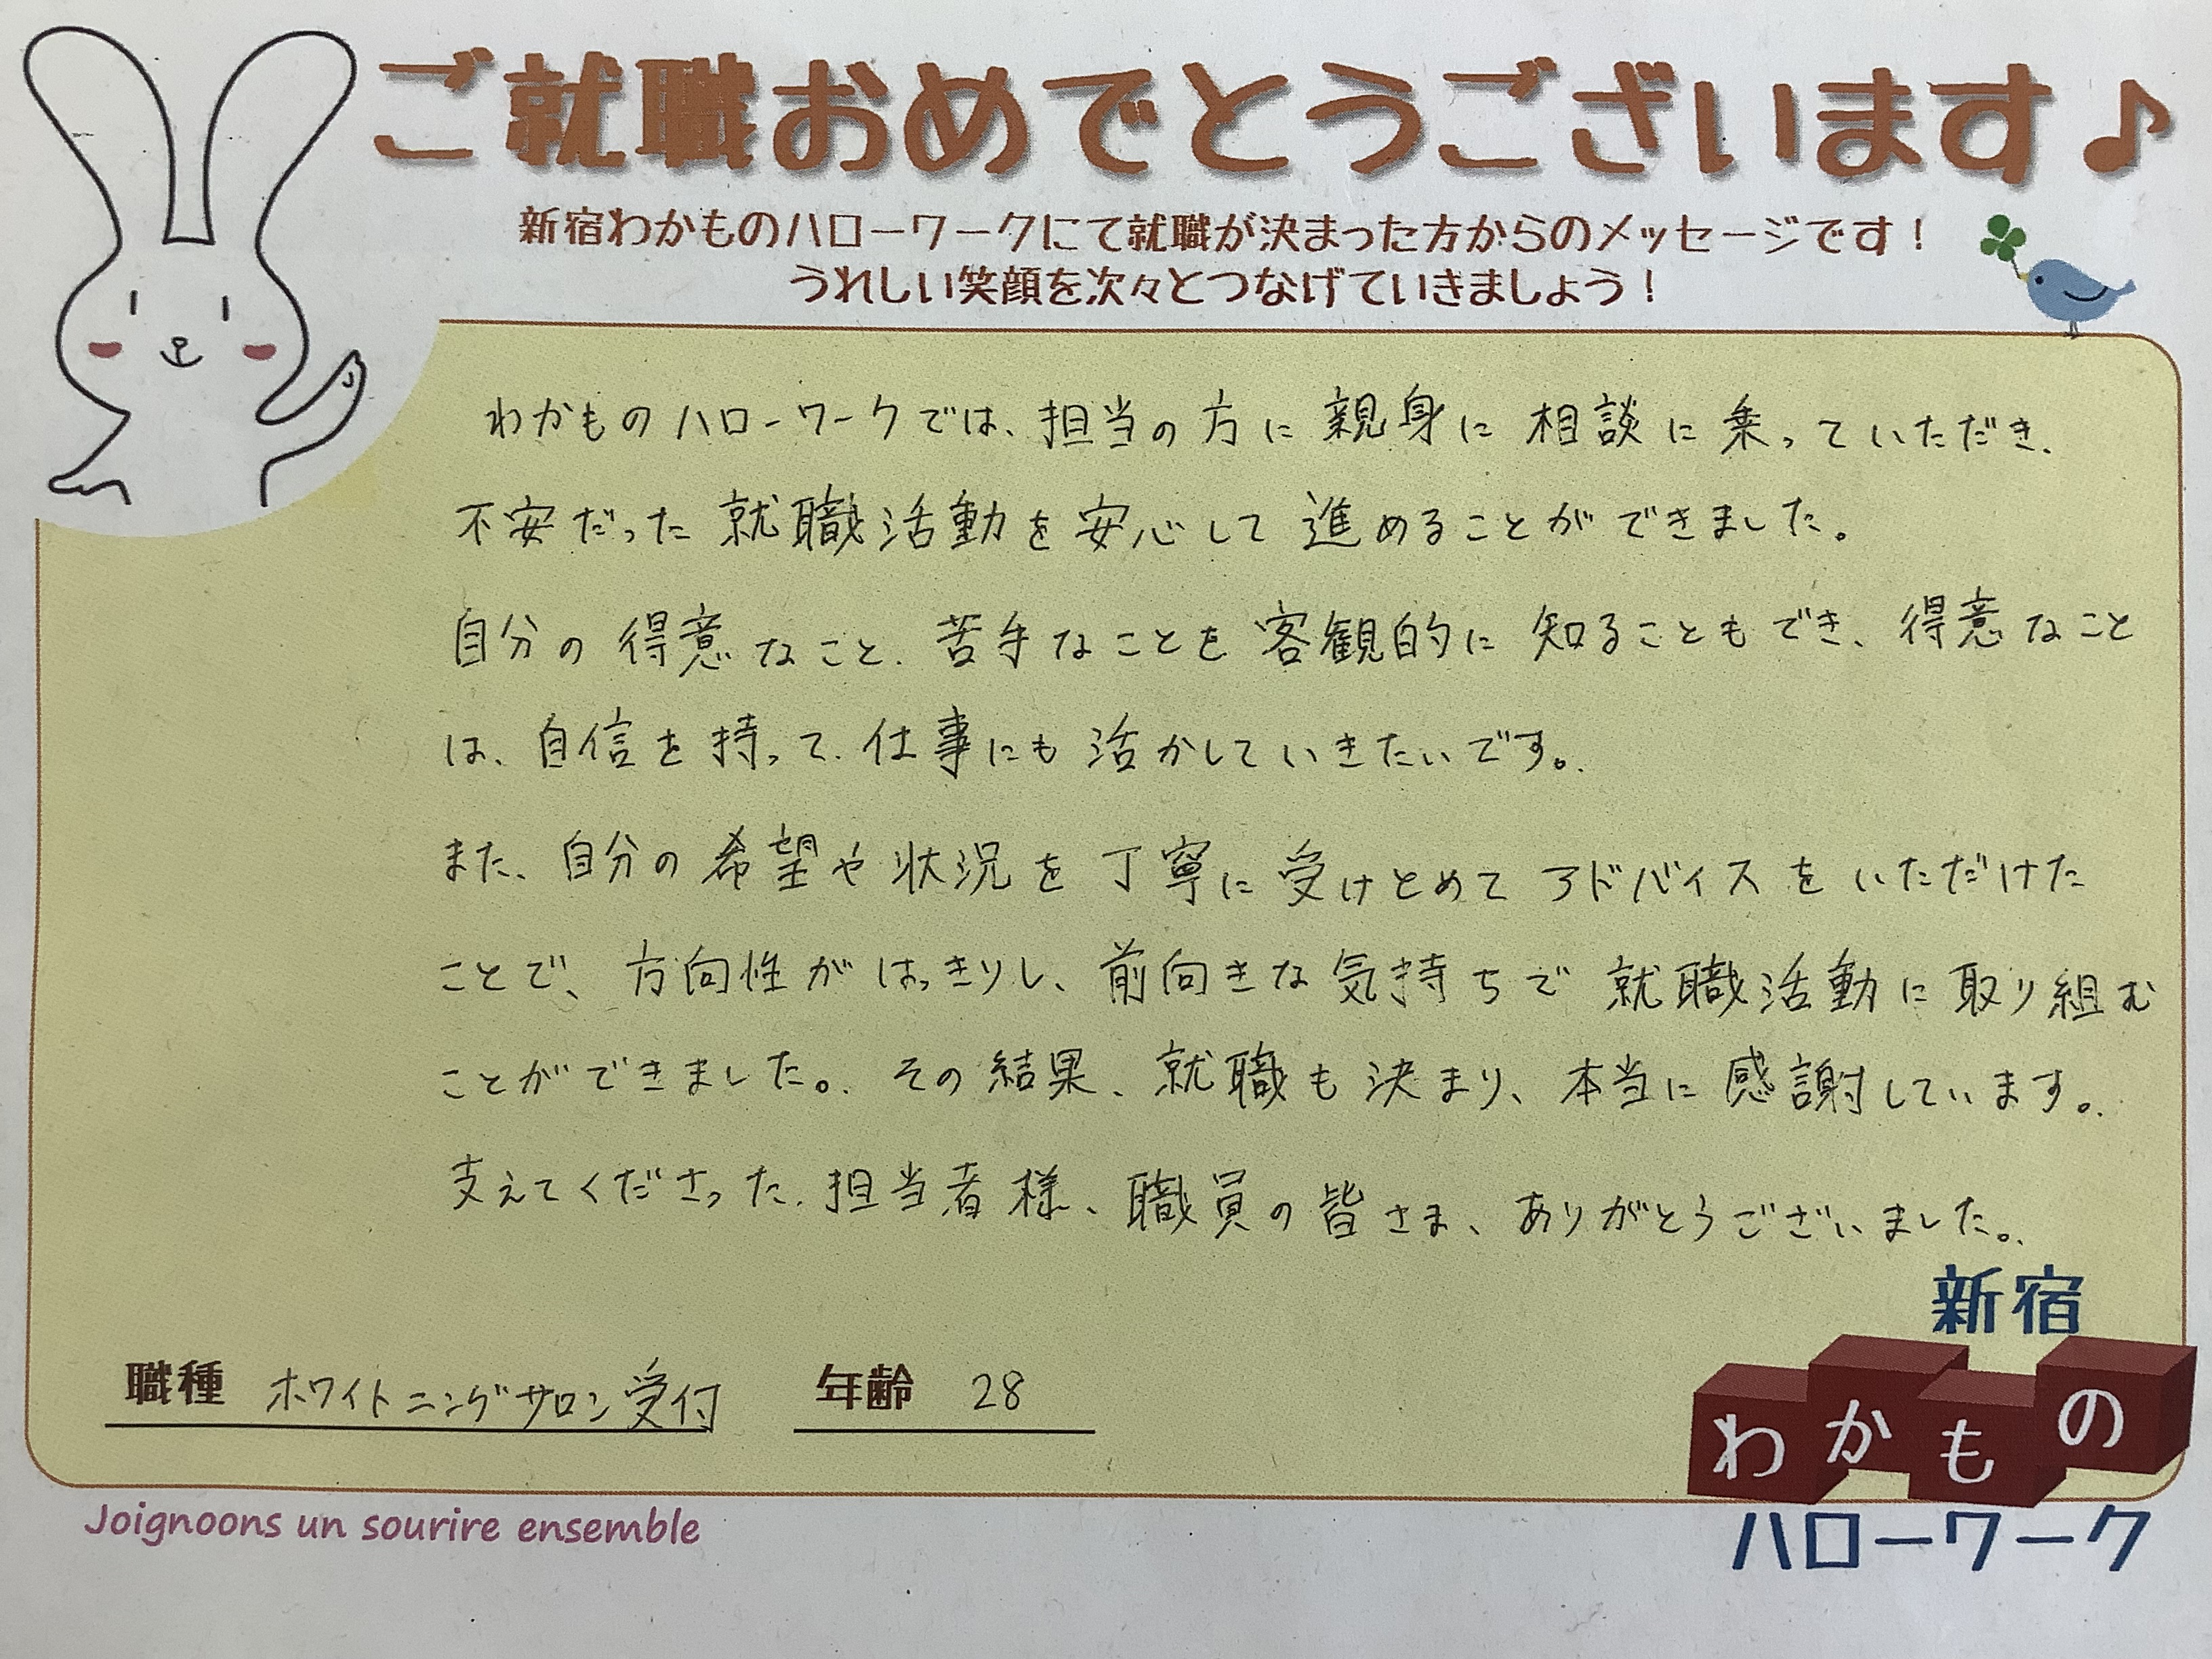 ご就職おめでとうございます♪
新宿わかものハローワークにて就職が決まった方からのメッセージです！
うれしい笑顔を次々とつなげていきましょう！
わかものハローワークでは、担当の方に親身に相談に乗っていただき、
不安だった就職活動を安心して進めることができました。
自分の得意なこと、苦手なことを客観的に知ることもでき、得意なこと
は、自信を持って、仕事にも活かしていきたいです。
また、自分の希望や状況を丁寧に受けとめてアドバイスをいただけた
ことで、方向性がはっきりし、前向きな気持ちで就職活動に取り組む
ことができました。その結果、就職も決まり、本当に感謝しています。
支えてくださった、担当者様、職員の皆さま、ありがとうございました。
職種 ホワイトニングサロン受付 年齢 28
新宿
わかもの
ハローワーク
Joignoons un sourire ensemble